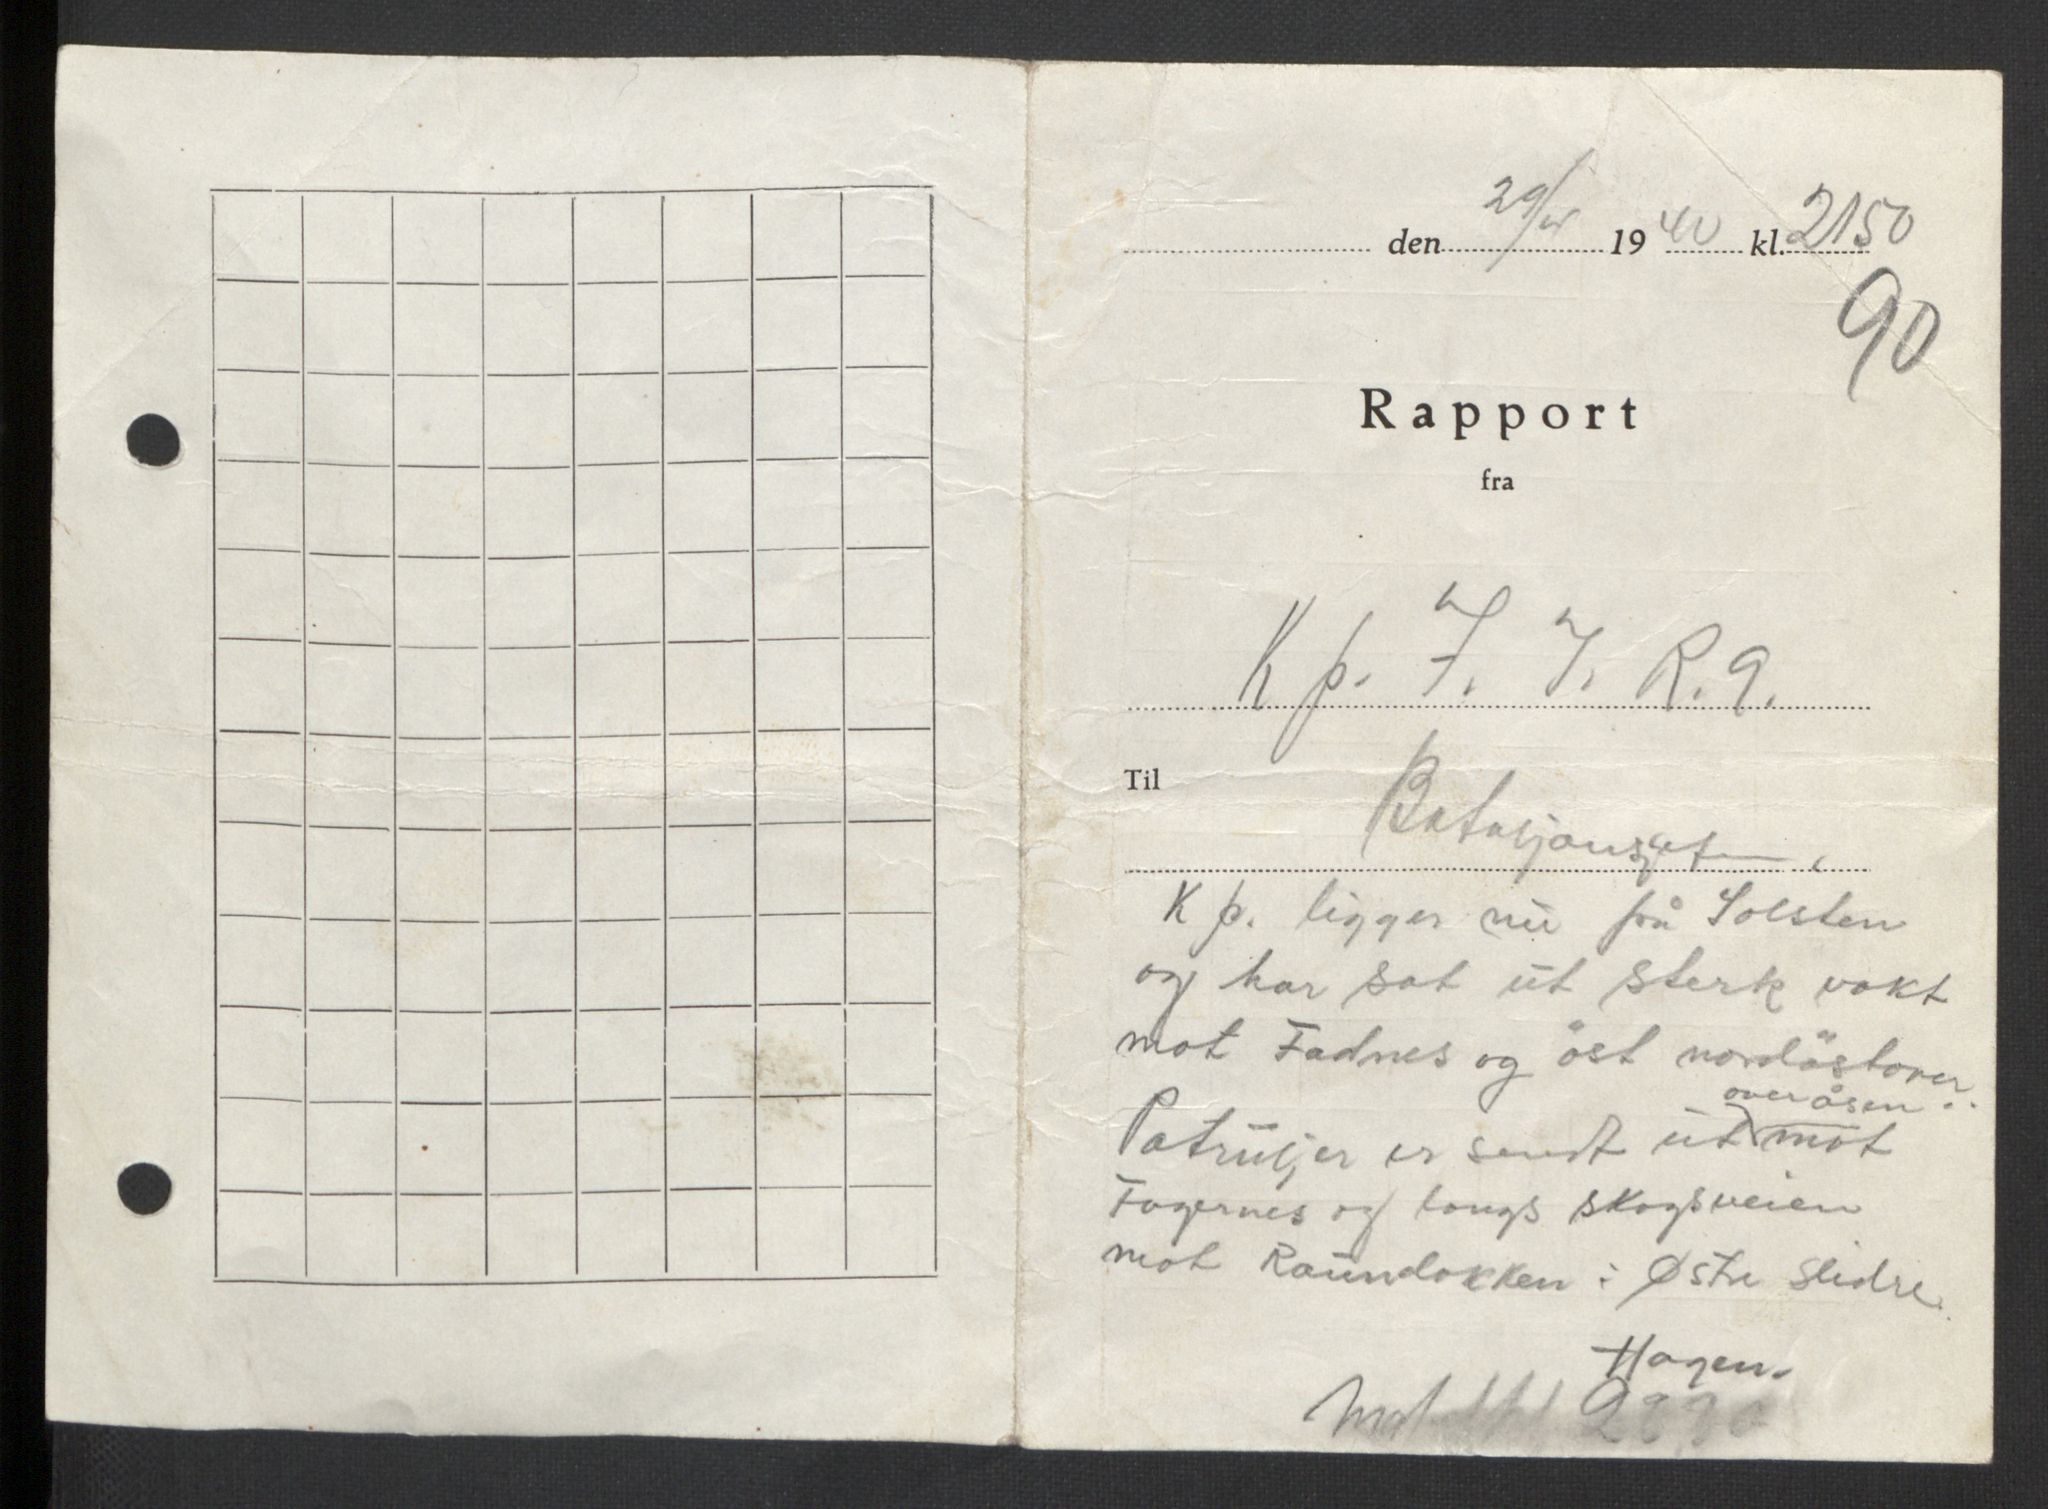 den 29/IV 1940 kl. 2150
90
Rapport
fra
Kp. 7. I. R. 9.
Til
Bataljonen
Kp. ligger nu på Solsten
og har sat ut sterk vakt
mot Fadnes og öst nordöstover.
over åsen
Patruljer er sendt ut mot
Fagernes og langs skogsveien
mot Raundokken i Østre Slidre.
Hagen.